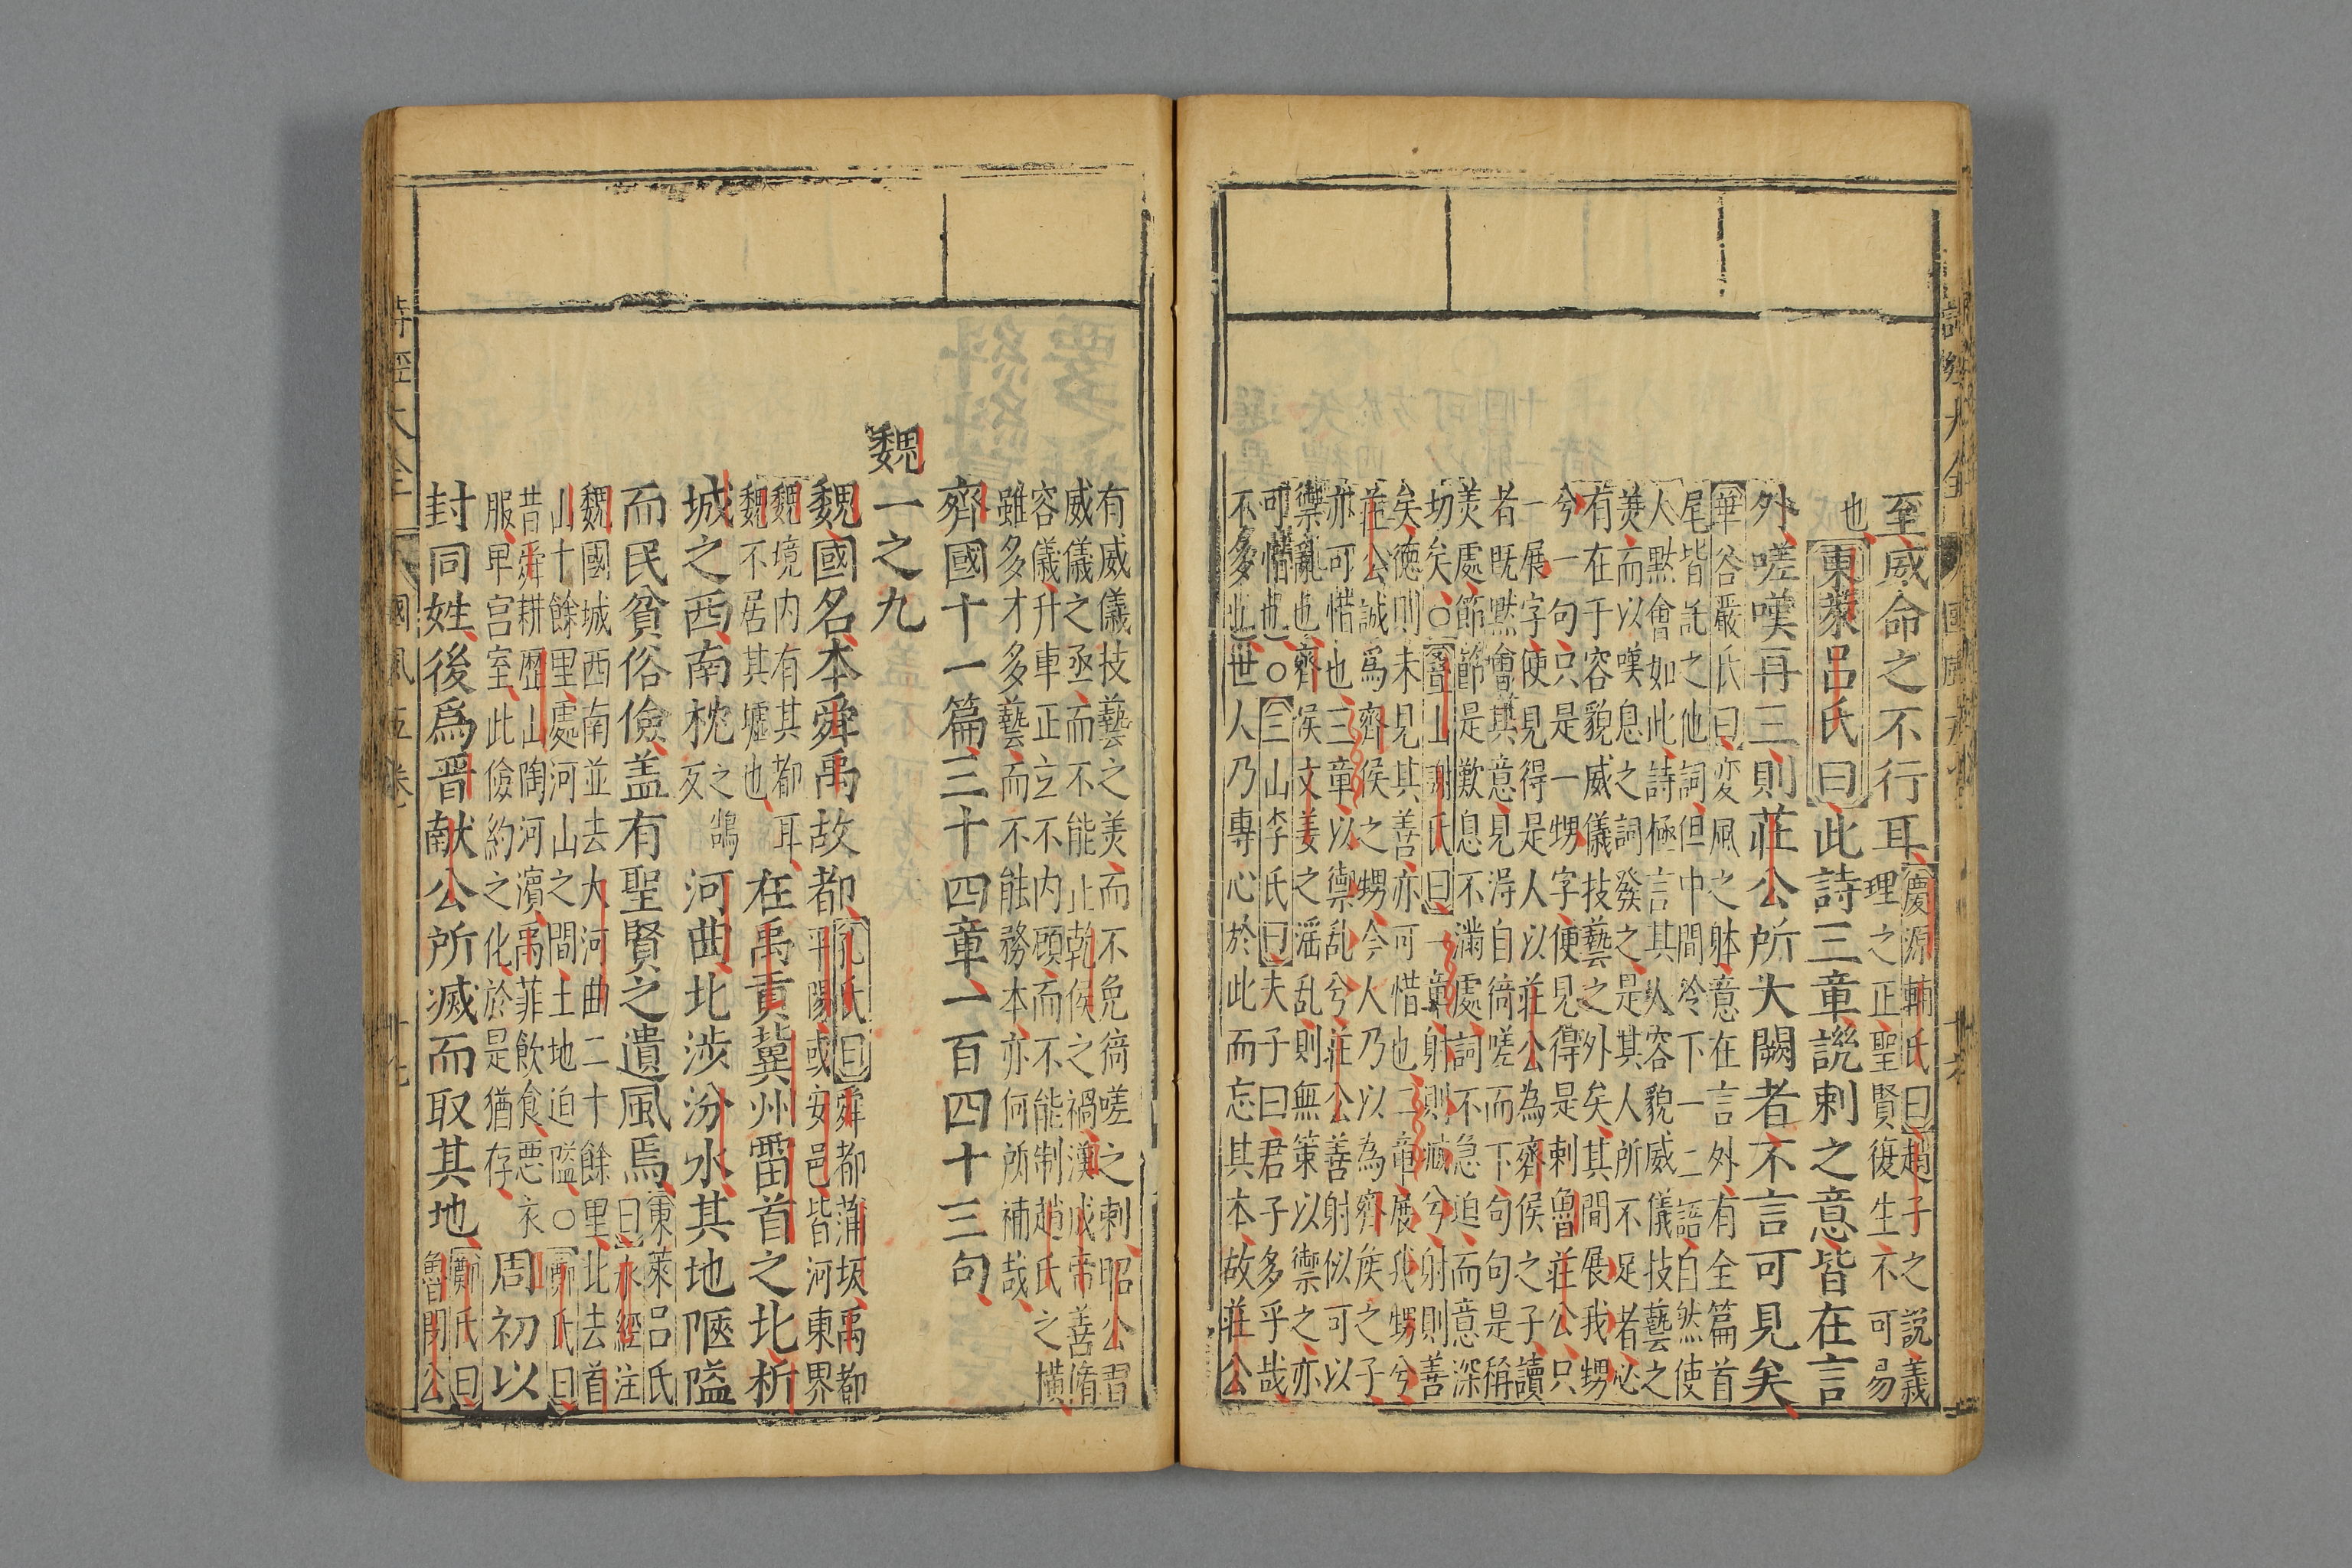 至威命之不行耳慶源輔氏曰趙子之説義
理之正聖賢復生不可易
也東萊呂氏曰此詩三章譏刺之意皆在言
外嗟嘆再三則莊公所大闕者不言可見矣
華谷嚴氏曰変風之躰意在言外有全篇首
尾皆託之他詞但中間冷下一二語自然使
人黙會如此詩極言其人容貌威儀技藝之
羙而以嘆息之詞發之是其人所不足者必
有在于容貌威儀技藝之外矣其間展我甥
兮一句只是一甥字便見得是刺魯莊公只
一展字便見得是人以莊公為齊侯之子讀
者既黙會其意見淂自猗嗟而下句句是稱
羙處節節是歎息不滿處詞不急迫而意深
切矣○疊山謝氏曰一章射則臧兮射則善
矣德則未見其善亦可惜也二章展我甥兮
莊公誠爲齊侯之甥今人乃以為齊侯之子
亦可惜也三章以禦乱兮莊公善射似可以
禦亂也齊侯文姜之滛乱則無策以禦之亦
可惜也○三山李氏曰夫子曰君子多乎哉
不多也世人乃專心於此而忘其本故莊公
有威儀技藝之羙而不免猗嗟之刺昭公習
威儀之亟而不能止乾侯之禍漢成帝善脩
容儀升車正立不内顧而不能制趙氏之橫
雖多才多藝而不能務本亦何所補哉
齊國十一篇三十四章一百四十三句
魏一之九
魏國名本舜禹故都孔氏曰舜都蒲坂禹都
平陽或安邑皆河東界
魏境内有其都耳
魏不居其墟也在禹貢冀州雷首之北析
城之西南枕之鴆反河曲北涉汾水其地陿隘
而民貧俗儉盖有聖賢之遺風焉東萊呂氏
曰水經注
魏國城西南並去大河曲二十餘里北去首
山十餘里處河山之間土地迫隘○鄭氏曰
昔舜耕歴山陶河濵禹菲飲食惡衣
服卑宮室此儉約之化於是猶存周初以
封同姓後爲晋献公所滅而取其地鄭氏曰
魯閔公